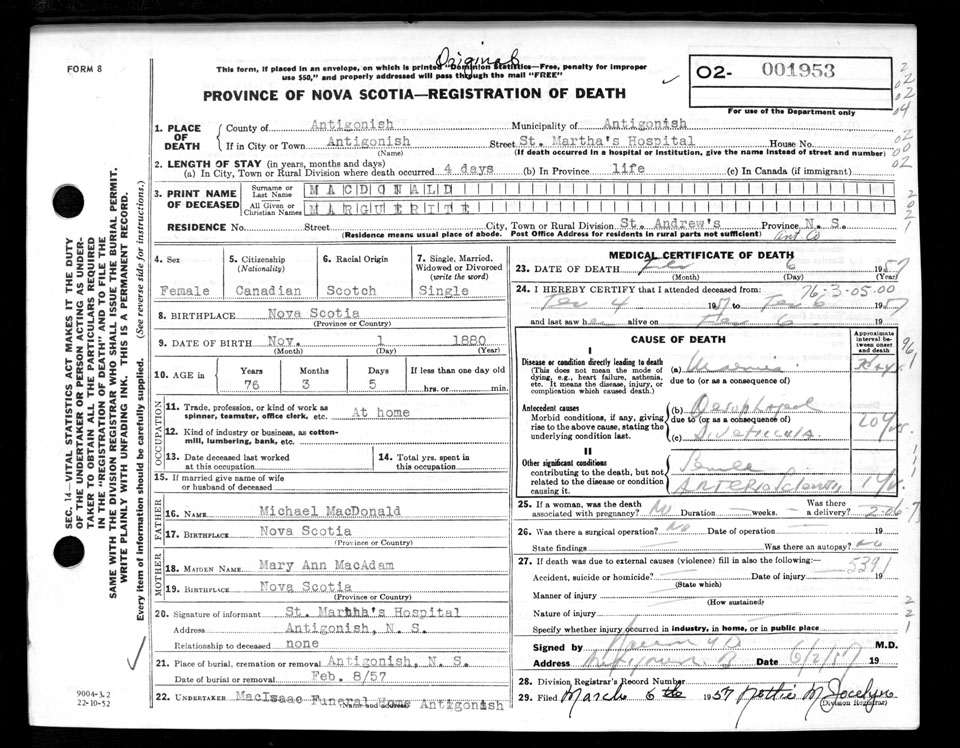 Original
FORM 8
This form, if placed in an envelope, on which is printed "Dominion Statistics—Free, penalty for improper
use $50," and properly addressed will pass through the mail "FREE"
02- 001953
For use of the Department only
PROVINCE OF NOVA SCOTIA—REGISTRATION OF DEATH
1. PLACE OF DEATH
County of Antigonish Municipality of Antigonish
If in City or Town Antigonish Street St. Martha's Hospital House No.
(Name) (If death occurred in a hospital or institution, give the name instead of street and number)
2. LENGTH OF STAY (in years, months and days)
(a) In City, Town or Rural Division where death occurred 4 days (b) In Province life (c) In Canada (if immigrant)
3. PRINT NAME OF DECEASED
Surname or Last Name MACDONALD
All Given or Christian Names MARGUERITE
RESIDENCE No. Street City, Town or Rural Division St. Andrew's Province N. S.
(Residence means usual place of abode. Post Office Address for residents in rural parts not sufficient) Ant Co
4. Sex 5. Citizenship (Nationality) 6. Racial Origin 7. Single, Married, Widowed or Divorced (write the word)
Female Canadian Scotch Single
8. BIRTHPLACE Nova Scotia
(Province or Country)
9. DATE OF BIRTH Nov. 1 1880
(Month) (Day) (Year)
10. AGE in Years Months Days If less than one day old
76 3 5 hrs. or min.
OCCUPATION
11. Trade, profession, or kind of work as spinner, teamster, office clerk, etc. At home
12. Kind of industry or business, as cotton-mill, lumbering, bank, etc.
13. Date deceased last worked at this occupation
14. Total yrs. spent in this occupation
15. If married give name of wife or husband of deceased
FATHER
16. NAME Michael MacDonald
17. BIRTHPLACE Nova Scotia
(Province or Country)
MOTHER
18. MAIDEN NAME Mary Ann MacAdam
19. BIRTHPLACE Nova Scotia
(Province or Country)
20. Signature of informant St. Martha's Hospital
Address Antigonish, N. S.
Relationship to deceased none
21. Place of burial, cremation or removal Antigonish, N. S.
Date of burial or removal Feb. 8/57
22. UNDERTAKER MacIsaac Funeral Home Antigonish
(Name and address)
MEDICAL CERTIFICATE OF DEATH
23. DATE OF DEATH Feb 6 1957
(Month) (Day)
24. I HEREBY CERTIFY that I attended deceased from: 76-3-05.00
Feb 4 1957 to Feb 6 1957
and last saw her alive on Feb 6 19
CAUSE OF DEATH
Approximate interval between onset and death
I
Disease or condition directly leading to death
(This does not mean the mode of dying, e.g., heart failure, asthenia, etc. It means the disease, injury, or complication which caused death.)
(a) Uraemia
due to (or as a consequence of)
Antecedent causes
Morbid conditions, if any, giving rise to the above cause, stating the underlying condition last.
(b) Oesophageal
due to (or as a consequence of)
(c) Diverticula. 10 yrs.
II
Other significant conditions
contributing to the death, but not related to the disease or condition causing it.
Senile
Arteriosclerosis
25. If a woman, was the death associated with pregnancy? No Duration weeks. Was there a delivery?
26. Was there a surgical operation? No Date of operation 19
State findings Was there an autopsy? No
27. If death was due to external causes (violence) fill in also the following:— 5391
Accident, suicide or homicide? Date of injury 19
(State which)
Manner of injury
(How sustained)
Nature of injury
Specify whether injury occurred in industry, in home, or in public place
Signed by M.D.
Address Date 6/2/57 19
28. Division Registrar's Record Number
29. Filed March 6th 1957 Nottie M Jocelyn
(Division Registrar)
SEC. 14—VITAL STATISTICS ACT MAKES IT THE DUTY
OF THE UNDERTAKER OR PERSON ACTING AS UNDER-
TAKER TO OBTAIN ALL THE PARTICULARS REQUIRED
IN THE "REGISTRATION OF DEATH" AND TO FILE THE
SAME WITH THE DIVISION REGISTRAR WHO SHALL ISSUE THE BURIAL PERMIT.
WRITE PLAINLY WITH UNFADING INK. THIS IS A PERMANENT RECORD.
Every item of information should be carefully supplied. (See reverse side for instructions.)
9004-3.2
22-10-52